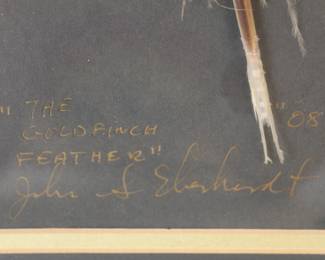 "THE
GOLDFINCH
FEATHER" "08
John S Eberhardt